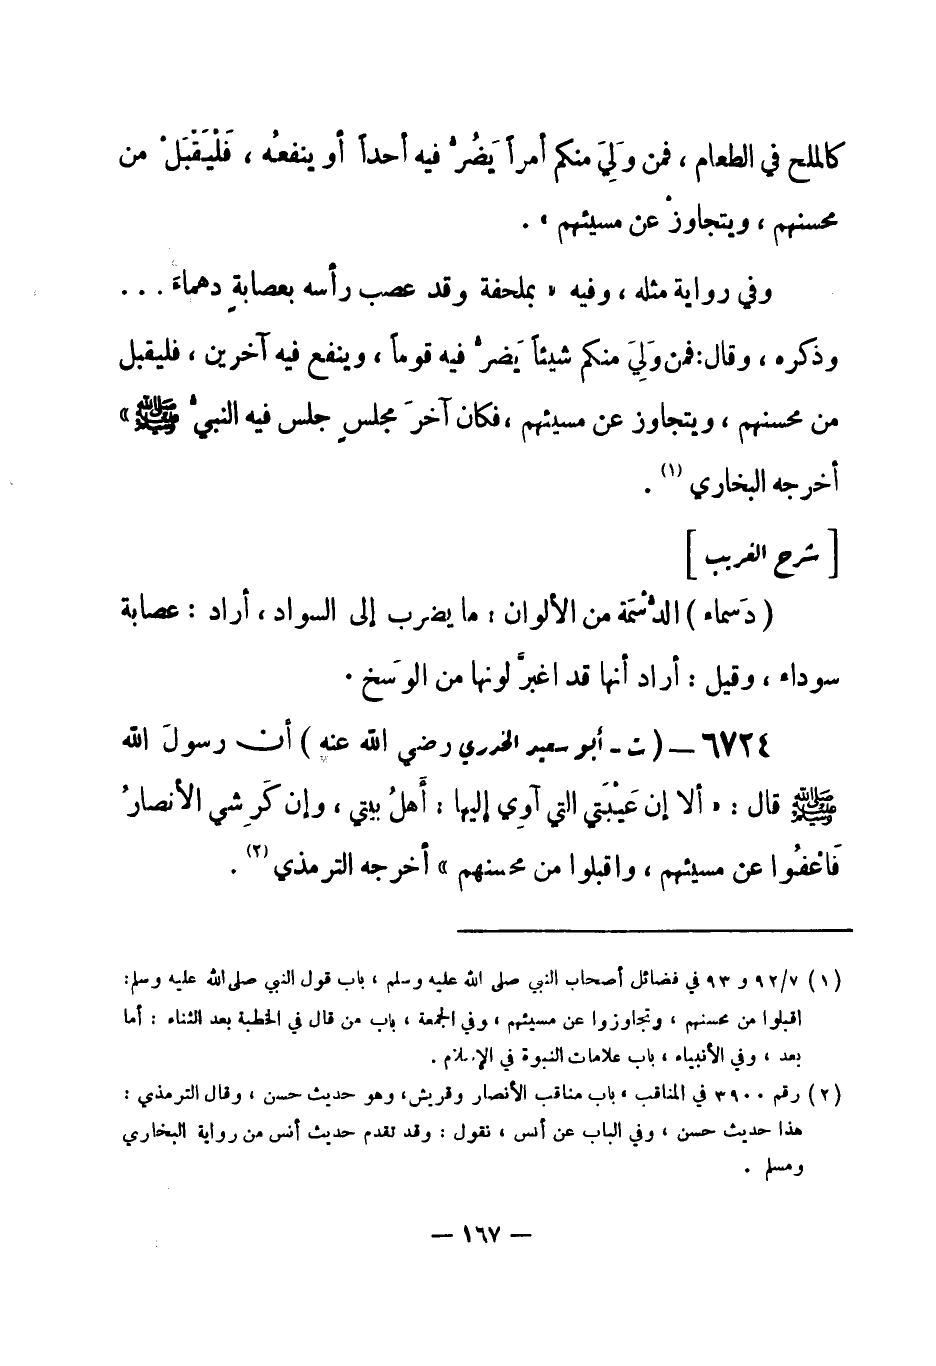 كالملح في الطعام ، فمن وَلِيَ منكم أمراً يَضُرُّ فيه أحداً أو ينفعُه ، فَلْيَقْبَلْ من
محسنهم ، ويتجاوزْ عن مسيئهم » .
وفي رواية مثله ، وفيه « بملحفة وقد عصب رأسه بعصابةٍ دهماءَ . . .
وذكره ، وقال: فمن وَلِيَ منكم شيئاً يَضرُّ فيه قوماً ، وينفع فيه آخرين ، فليقبل
من محسنهم ، ويتجاوز عن مسيئهم ، فكان آخرَ مجلسٍ جلس فيه النبيُّ ﷺ »
أخرجه البخاري (١) .
[ شرح الغريب ]
( دَسماء ) الدُّسْمَة من الألوان : ما يضرب إلى السواد ، أراد : عصابة
سوداء ، وقيل : أراد أنها قد اغبرَّ لونها من الوَسَخ .
٦٧٢٤ – ( ت - أبو سعيد الخدري رضي الله عنه ) أن رسولَ الله
ﷺ قال : « ألا إن عَيْبَتي التي آوِي إليها : أَهلُ بيتي ، وإن كَرِشي الأنصارُ
فَاعْفُوا عن مسيئهم ، واقبلوا من محسنهم » أخرجه الترمذي (٢) .
(١) ٩٢/٧ و ٩٣ في فضائل أصحاب النبي صلى الله عليه وسلم ، باب قول النبي صلى الله عليه وسلم:
اقبلوا من محسنهم ، وتجاوزوا عن مسيئهم ، وفي الجمعة ، باب من قال في الخطبة بعد الثناء : أما
بعد ، وفي الأنبياء ، باب علامات النبوة في الإسلام .
(٢) رقم ٣٩٠٠ في المناقب ، باب مناقب الأنصار وقريش، وهو حديث حسن ، وقال الترمذي :
هذا حديث حسن ، وفي الباب عن أنس ، نقول : وقد تقدم حديث أنس من رواية البخاري
ومسلم .
— ١٦٧ —